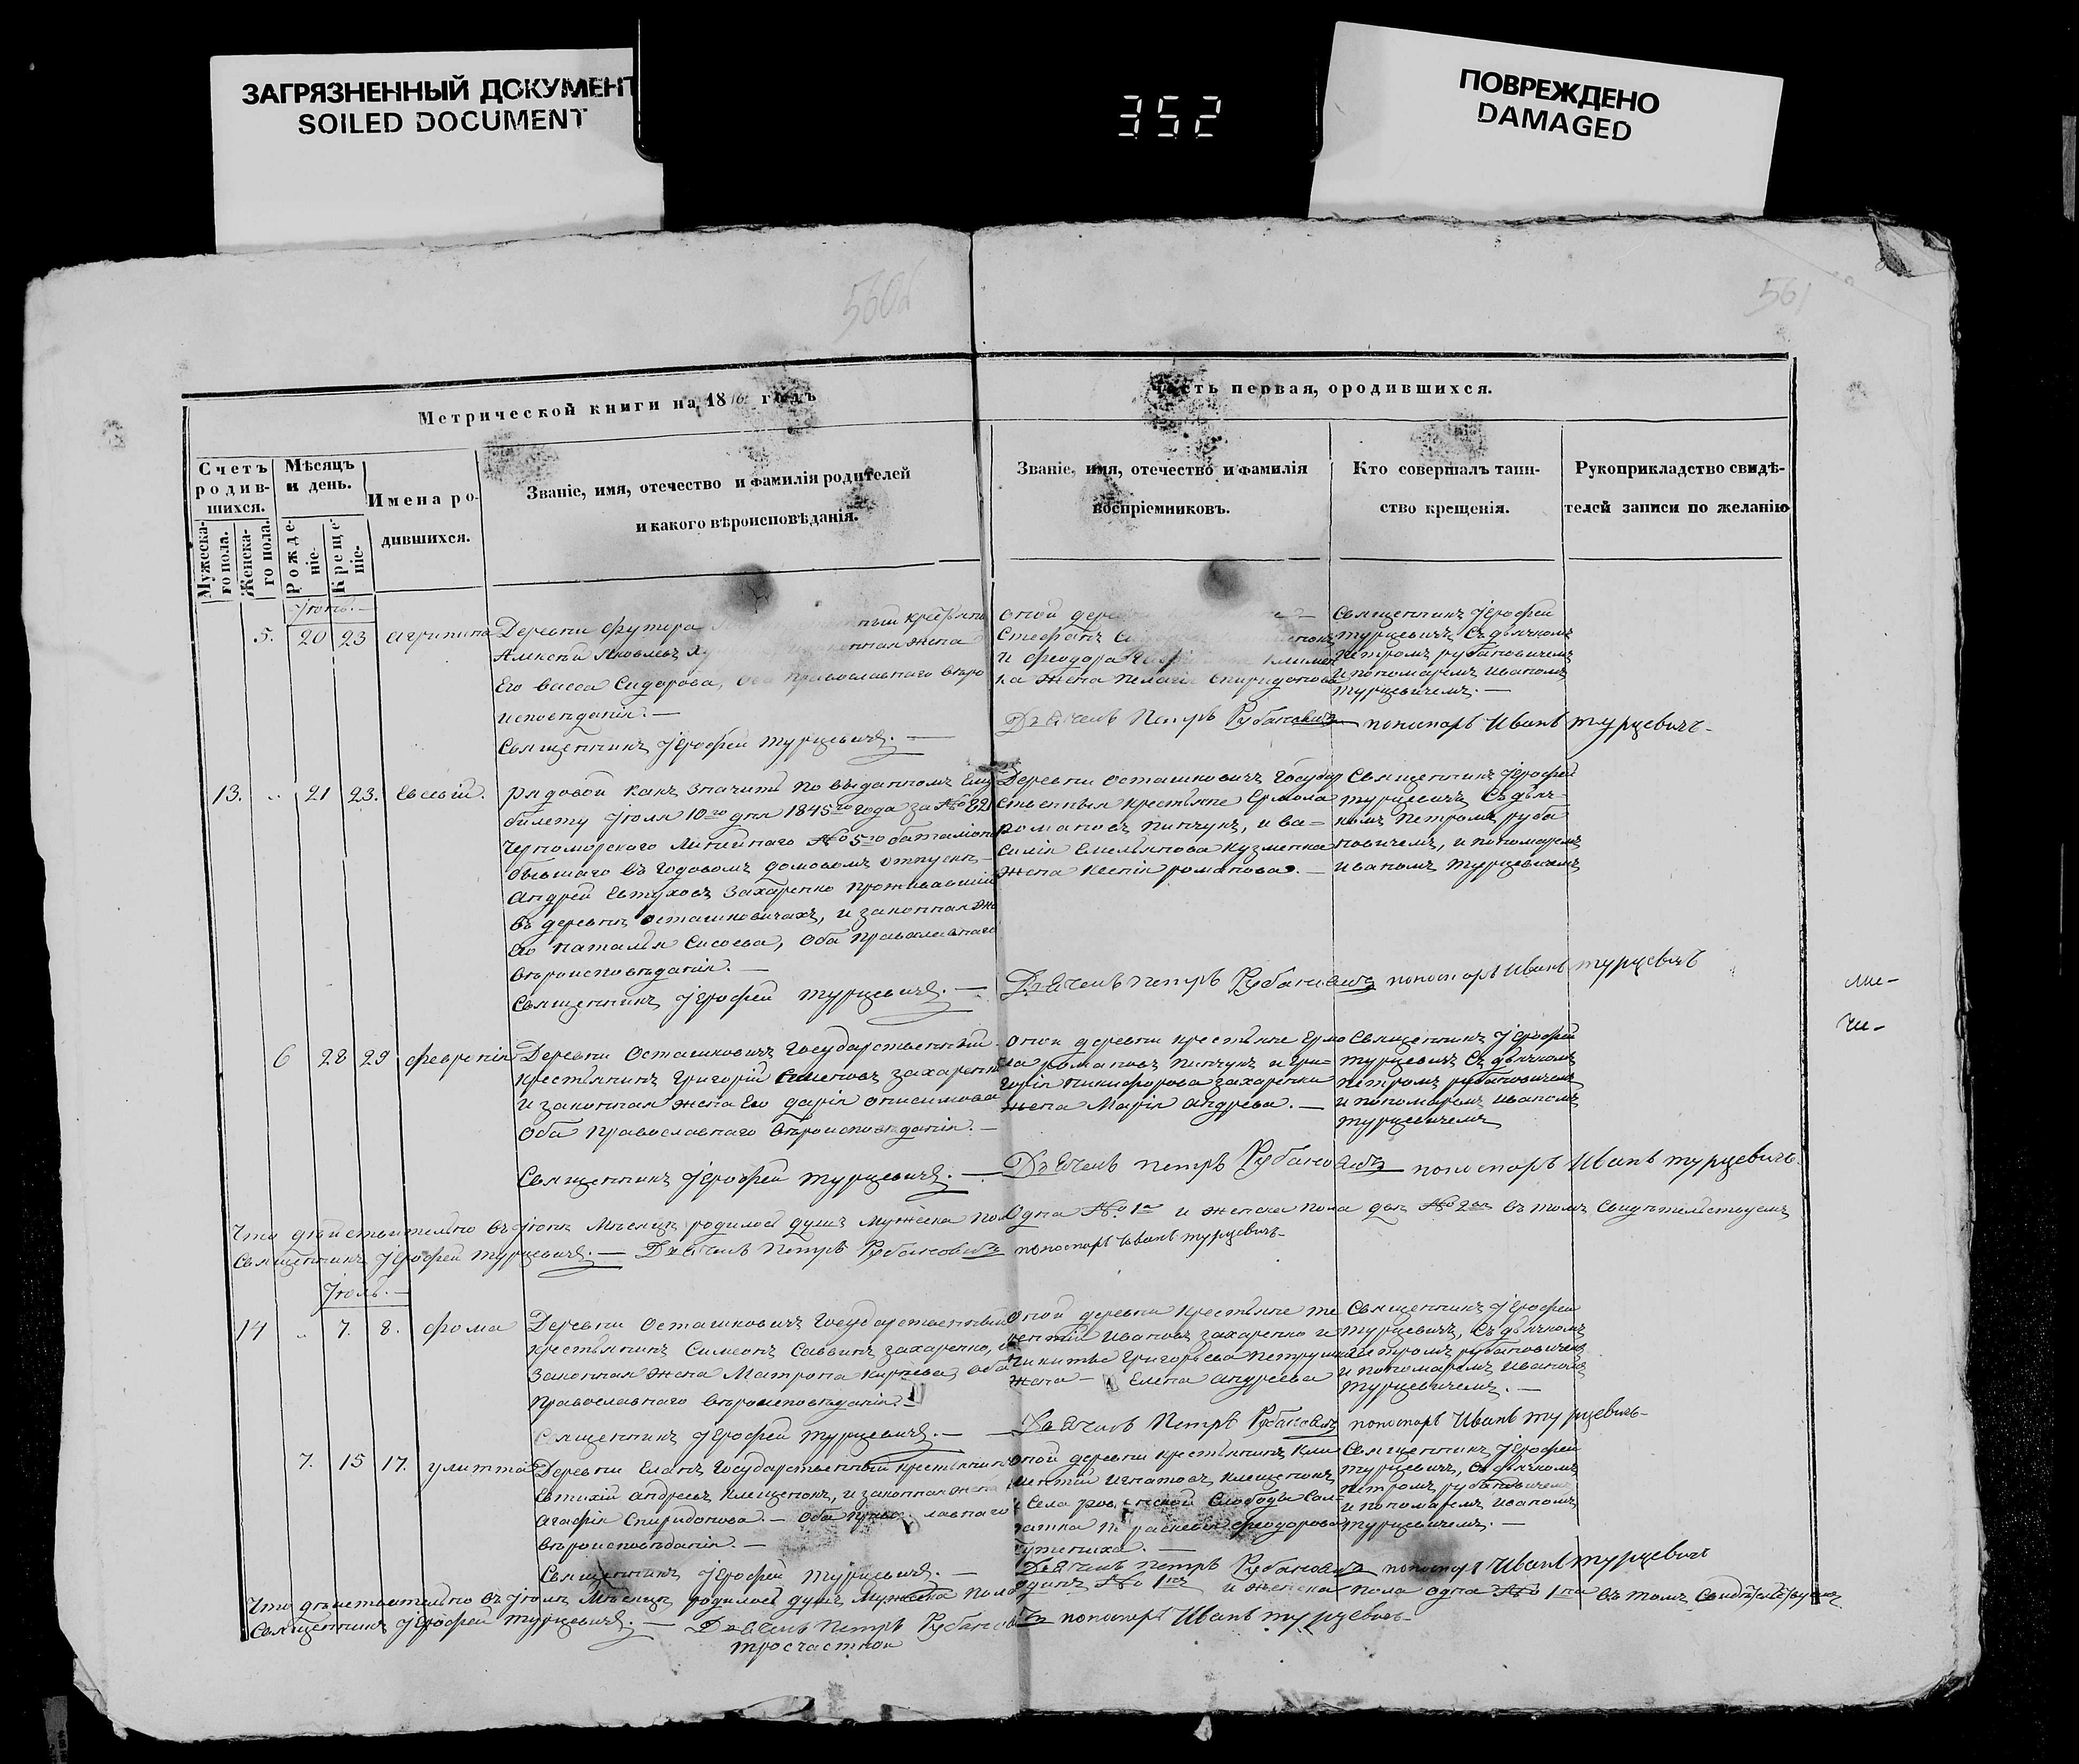 ЗАГРЯЗНЕННЫЙ ДОКУМЕНТ
SOILED DOCUMENT
352
ПОВРЕЖДЕНО
DAMAGED
561
Метрической книги на 1846 годъ
часть первая, ородившихся.
Счетъ родив-шихся.
Мужеска-го пола.
Женска-го пола.
Мѣсяцъ и день.
Рожде-ніе.
Креще-ніе.
Имена ро-
дившихся.
Званіе, имя, отечество и фамилія родителей
и какого вѣроисповѣданія.
Званіе, имя, отечество и фамилія
воспріемниковъ.
Кто совершалъ таин-
ство крещенія.
Рукоприкладство свидѣ-
телей записи по желанію
Іюнь.
5. 20 23 Агрипина
Деревни Футора
Алексѣй Яковлевъ
Его Васса Сидорова, православнаго вѣро
исповѣданія. —
Священникъ Іерофей Турцевичъ. —
оной
Стефанъ
и Феодора
ка жена Пелагія Спиридонова
Священникъ Іерофей
Турцевичъ, съ дьячкомъ
Петромъ Рубановичемъ
и пономаремъ Иваномъ
Турцевичемъ. —
Дьячекъ Петръ Рубановичъ пономарь Иванъ Турцевичъ
13. „ 21 23. Евсевій.
Рядовой какъ значитъ по выданномъ Ему
билету Іюля 10го дня 1845го года за №821
Черноморскаго Линейнаго №5го баталіона
бывшаго въ годовомъ домовомъ отпускѣ
Андрей Евтуховъ Захаренко проживавшій
въ деревнѣ Осташковичахъ, и законная же
его Наталія Сисоева, оба православнаго
вѣроисповѣданія. —
Священникъ Іерофей Турцевичъ. —
Деревни Осташковичъ Государ
ственныя крестьяне Ермола
Романовъ Пинчукъ, и Ва=
силія Емельянова Кузменка
жена Ксенія Романова. —
Священникъ Іерофей
Турцевичъ съ дьяч=
комъ Петромъ Руба
новичемъ, и пономаремъ
Иваномъ Турцевичемъ
Дьячекъ Петръ Рубановичъ пономарь Иванъ Турцевичъ
6 28 29 Февронія
Деревни Осташковичъ Государственный
крестьянинъ Григорій Симеоновъ Захаренко
и законная жена Его Дарія Онисимова
Оба Православнаго вѣроисповѣданія. —
Священникъ Іерофей Турцевичъ. —
Оной деревни крестьяне Ермо
ла Романовъ Пинчукъ и Гри=
горія Никифорова Захаренки
жена Марія Андрѣева. —
Священникъ Іерофей
Турцевичъ съ дьячкомъ
Петромъ Рубановичемъ
и пономаремъ Иваномъ
Турцевичемъ
Дьячекъ Петръ Рубановичъ пономарь Иванъ Турцевичъ
Что дѣйствительно въ Іюнѣ Мѣсяцѣ родилось душъ Мужеска пола Одна №1 и женска пола двѣ №2 въ томъ Свидѣтельствуемъ
Священникъ Іерофей Турцевичъ. — Дьячекъ Петръ Рубановичъ пономарь Иванъ Турцевичъ
Іюль. —
14 „ 7. 8. Фома
Деревни Осташковичъ Государственный
крестьянинъ Симеонъ Саввинъ Захаренко, и
Законная жена Матрона Карпѣева, Оба
Православнаго вѣроисповѣданія. —
Священникъ Іерофей Турцевичъ. —
Оной деревни Крестьяне Те
рентій Ивановъ Захаренко и
Никиты Григорьева
жена — Елена Андреева
Священникъ Іерофей
Турцевичъ, съ дьячкомъ
Петромъ Рубановичемъ
и пономаремъ Иваномъ
Турцевичемъ. —
Дьячекъ Петръ Рубановичъ пономарь Иванъ Турцевичъ
7. 15 17. Улитта
Деревни Еланъ Государственный крестьянинъ
Евтихій Андреевъ Клещенокъ, и законная жена
Агафія Спиридонова. — Оба Православнаго
вѣроисповѣданія. —
Священникъ Іерофей Турцевичъ. —
оной деревни крестьянинъ Кли
ментій Игнатовъ Клещенокъ
и Села Слободы Сол=
датка Параскевія Феодорова
Священникъ Іерофей
Турцевичъ, съ дьячкомъ
Петромъ Рубановичемъ
и пономаремъ Иваномъ
Турцевичемъ. —
Дьячекъ Петръ Рубановичъ пономарь Иванъ Турцевичъ
Что дѣйствительно въ Іюлѣ Мѣсяцѣ родилось душъ Мужеска пола одинъ №1 и женска пола одна №1 въ томъ Свидѣтельствуемъ
Священникъ Іерофей Турцевичъ. — Дьячекъ Петръ Рубановичъ пономарь Иванъ Турцевичъ